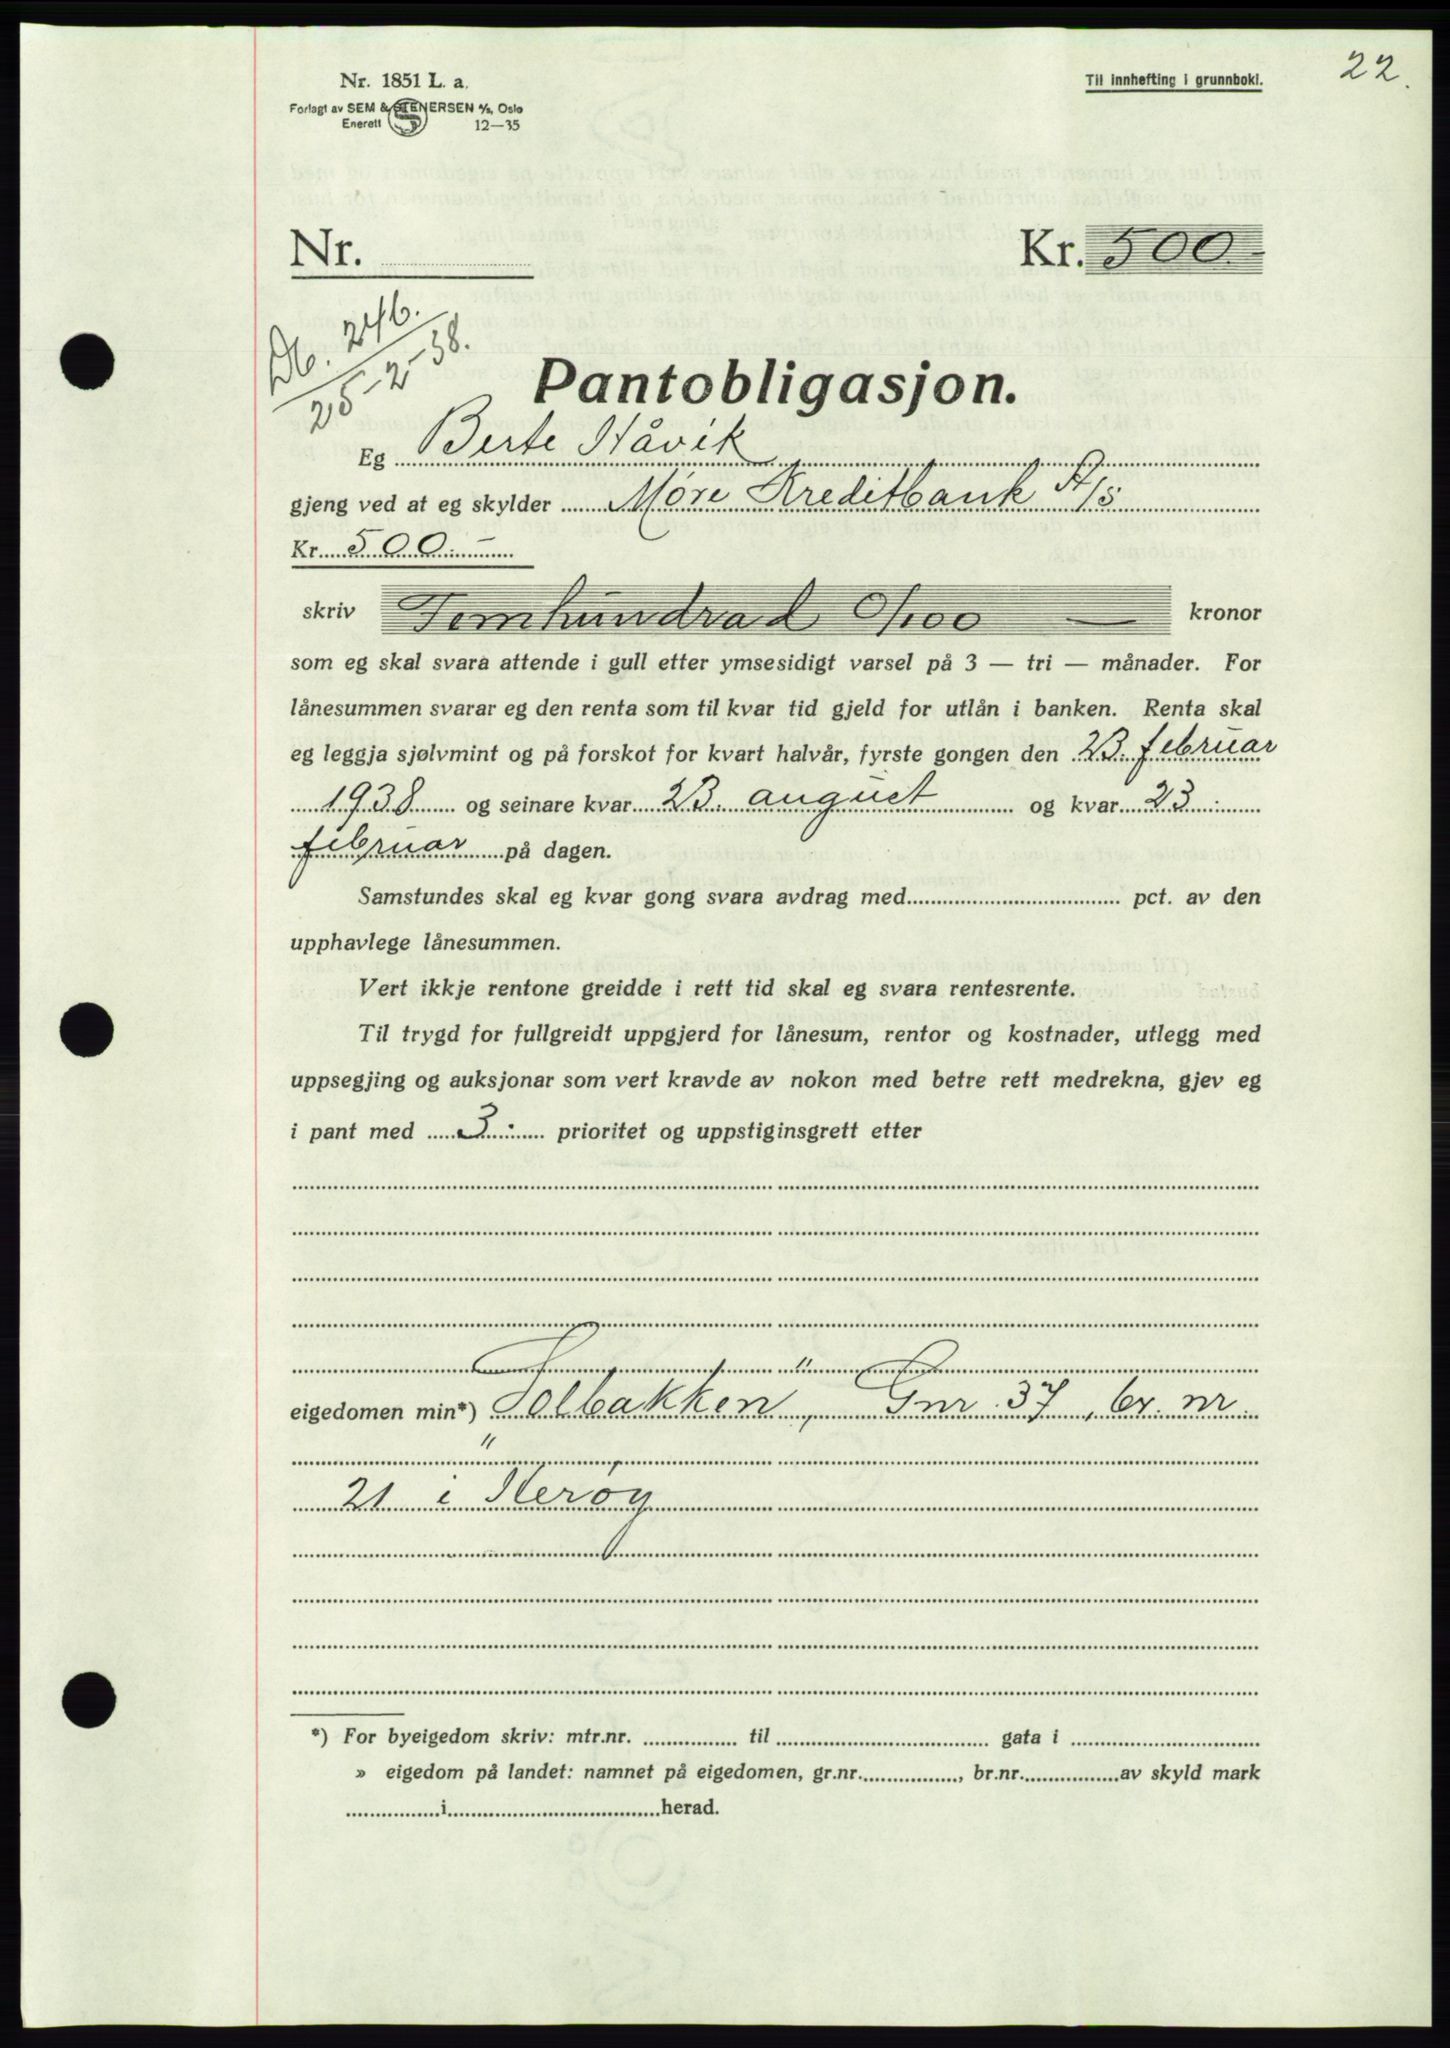 22.
Nr. 1851 L. a.
Til innhefting i grunnboki.
Forlagt av SEM & STENERSEN A/S, Oslo
Enerett 12—35
Nr.
Kr. 500.-
Db. 246.
25-2-38.
Pantobligasjon.
Eg Berte Håvik
gjeng ved at eg skylder Møre Kreditbank A/S
Kr. 500.-
skriv Femhundrad 0/100 — kronor
som eg skal svara attende i gull etter ymsesidigt varsel på 3 — tri — månader. For
lånesummen svarar eg den renta som til kvar tid gjeld for utlån i banken. Renta skal
eg leggja sjølvmint og på forskot for kvart halvår, fyrste gongen den 23. februar
1938 og seinare kvar 23. august og kvar 23.
februar på dagen.
Samstundes skal eg kvar gong svara avdrag med pct. av den
upphavlege lånesummen.
Vert ikkje rentone greidde i rett tid skal eg svara rentesrente.
Til trygd for fullgreidt uppgjerd for lånesum, rentor og kostnader, utlegg med
uppsegjing og auksjonar som vert kravde av nokon med betre rett medrekna, gjev eg
i pant med 3. prioritet og uppstiginsgrett etter
eigedomen min*) "Solbakken", Gnr. 37, br. nr.
21 i Herøy
*) For byeigedom skriv: mtr.nr. til gata i
» eigedom på landet: namnet på eigedomen, gr.nr. , br.nr. av skyld mark
i herad.